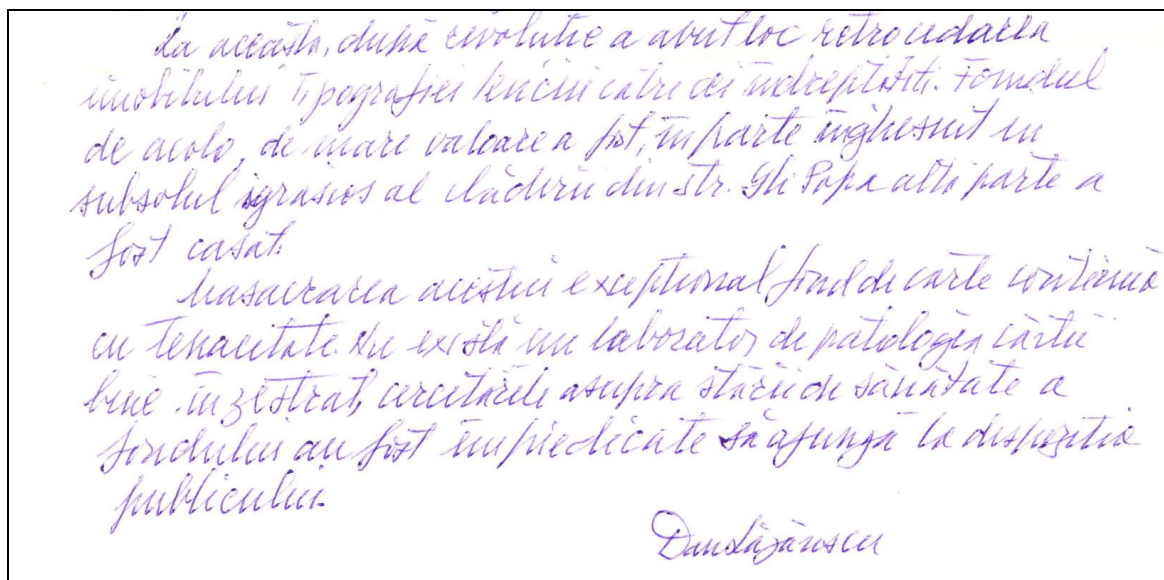 La aceasta, după revolutie a avut loc retrocedarea
imobilului Tipografiei către cei indreptatiti. Fondul
de acolo, de mare valoare a fost, in parte inghesuit in
subsolul igrasios al clădirii din str. Gh Popa alta parte a
fost casat.
Masacrarea acestui exceptional fond de carte continuă
cu tenacitate. Nu există un laborator de patologia cărtii
bine inzestrat, cercetările asupra stării de sănătate a
fondului au fost impiedicate să ajungă la dispozitia
publicului.
Dan Lăzărescu